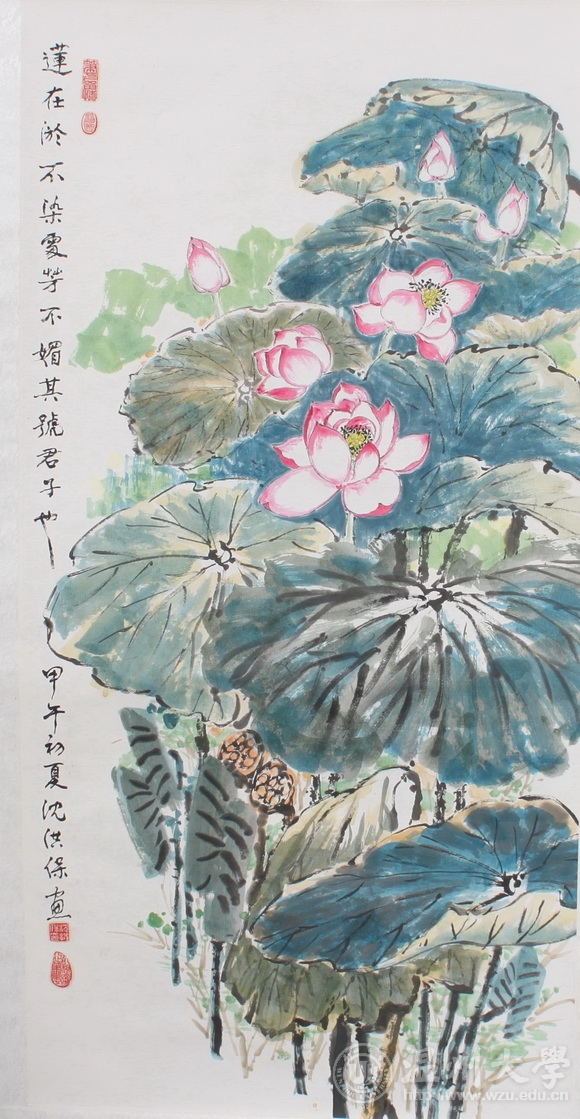 蓮在淤不染處芳不媚其號君子也
甲午初夏沈洪保畫
温州大學
http://www.wzu.edu.cn